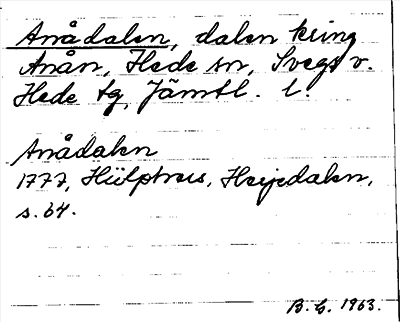 Anådalen, dalen kring
Anån, Hede sn, Svegs v.
Hede tg, Jämtl. l.
Anådalen
1777, Hülphers, Herjedalen,
s. 64.
B. G. 1963.